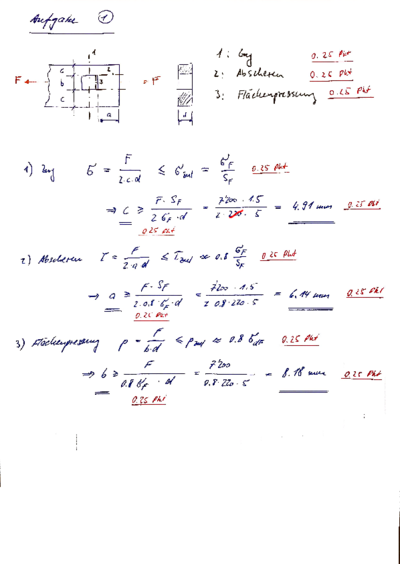 Aufgabe 1
1 : Zug 0.25 Pkt
2 : Abscheren 0.25 Pkt
3 : Flächenpressung 0.25 Pkt
1
c 2
F b 3 = F
c
a d
1) Zug σ = F / (2·c·d) ≤ σzul = σF / SF 0.25 Pkt
⇒ c ≥ F·SF / (2 σF·d) = 7'200·1.5 / (2·220·5) = 4.91 mm 0.25 Pkt
0.25 Pkt
2) Abscheren τ = F / (2·a·d) ≤ τzul ≈ 0.8 σF / SF 0.25 Pkt
⇒ a ≥ F·SF / (2·0.8 σF·d) = 7'200·1.5 / (2·0.8·220·5) = 6.14 mm 0.25 Pkt
0.25 Pkt
3) Flächenpressung p = F / (b·d) ≤ pzul ≈ 0.8 σdF 0.25 Pkt
⇒ b ≥ F / (0.8 σF·d) = 7'200 / (0.8·220·5) = 8.18 mm 0.25 Pkt
0.25 Pkt